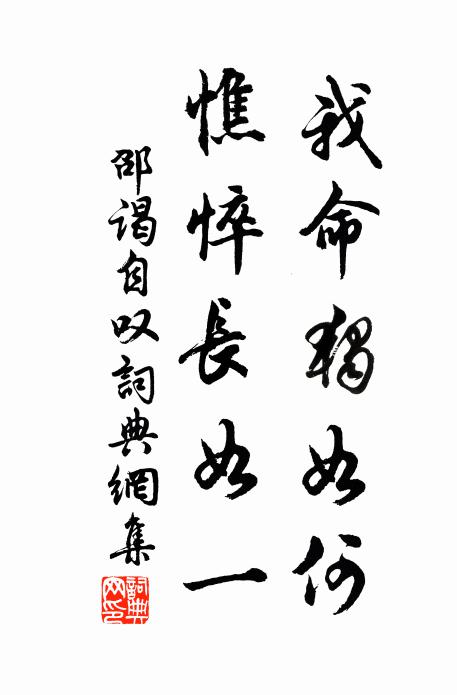 我命獨如何
憔悴長如一
邵谒自叹詞典網集
詞典網印